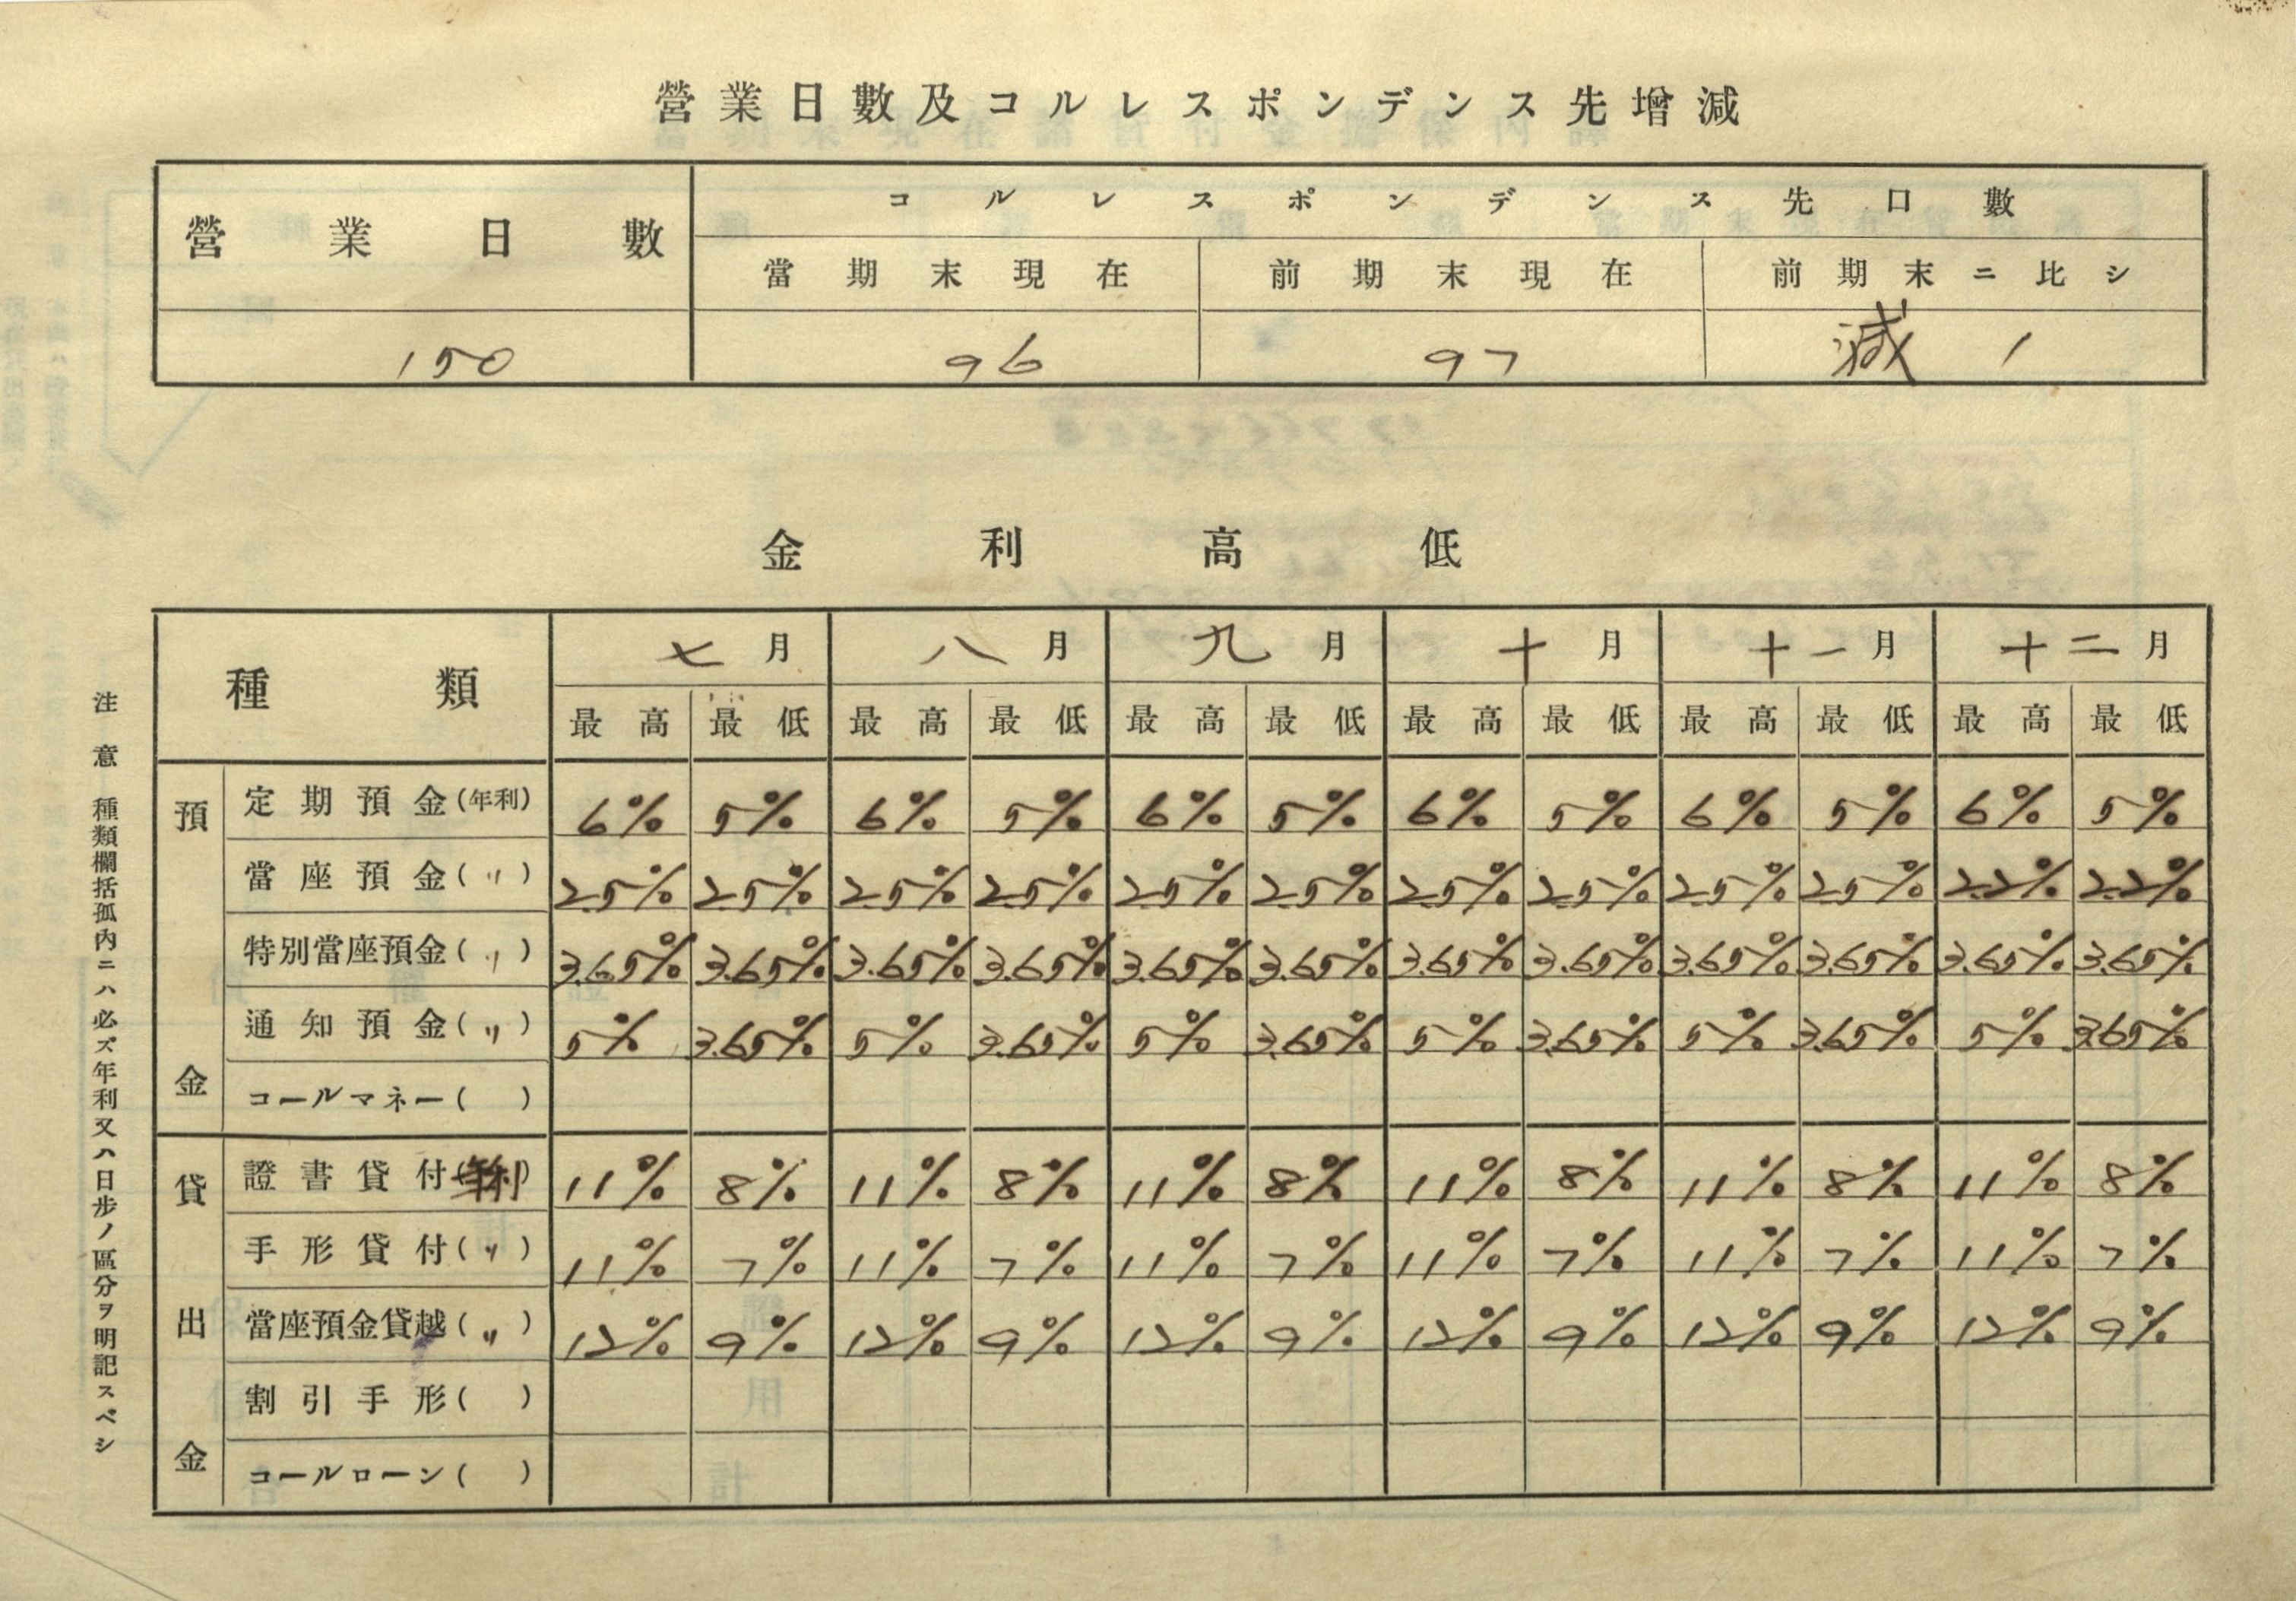 營業日數及コルレスポンデンス先增減
營業日數 コルレスポンデンス先口數
當期末現在 前期末現在 前期末ニ比シ
150 96 97 減 1
金利高低
種類 七月 八月 九月 十月 十一月 十二月
最高 最低 最高 最低 最高 最低 最高 最低 最高 最低 最高 最低
預金
定期預金(年利) 6% 5% 6% 5% 6% 5% 6% 5% 6% 5% 6% 5%
當座預金(〃) 2.5% 2.5% 2.5% 2.5% 2.5% 2.5% 2.5% 2.5% 2.5% 2.5% 2.2% 2.2%
特別當座預金(〃) 3.65% 3.65% 3.65% 3.65% 3.65% 3.65% 3.65% 3.65% 3.65% 3.65% 3.65% 3.65%
通知預金(〃) 5% 3.65% 5% 3.65% 5% 3.65% 5% 3.65% 5% 3.65% 5% 3.65%
コールマネー( )
貸出金
證書貸付(年利) 11% 8% 11% 8% 11% 8% 11% 8% 11% 8% 11% 8%
手形貸付(〃) 11% 7% 11% 7% 11% 7% 11% 7% 11% 7% 11% 7%
當座預金貸越(〃) 12% 9% 12% 9% 12% 9% 12% 9% 12% 9% 12% 9%
割引手形( )
コールローン( )
注意 種類欄括孤內ニハ必ズ年利又ハ日步ノ區分ヲ明記スベシ